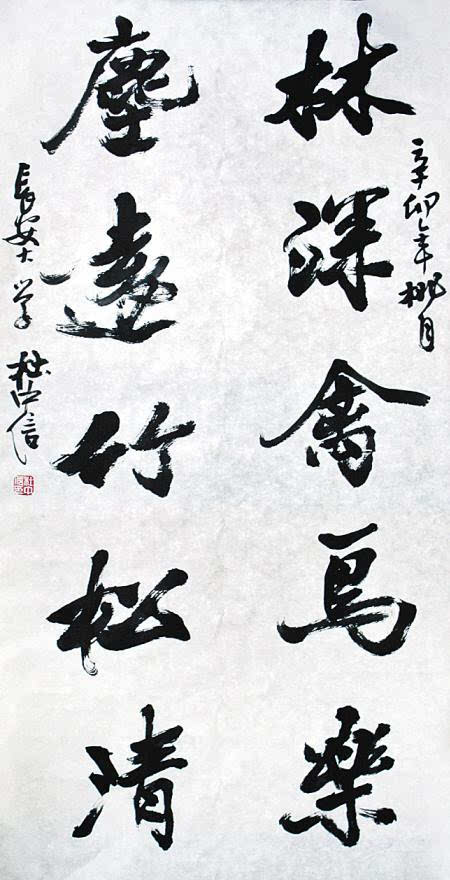 辛卯年桃月
林深禽鳥樂
塵遠竹松清
長安大学 杜中信